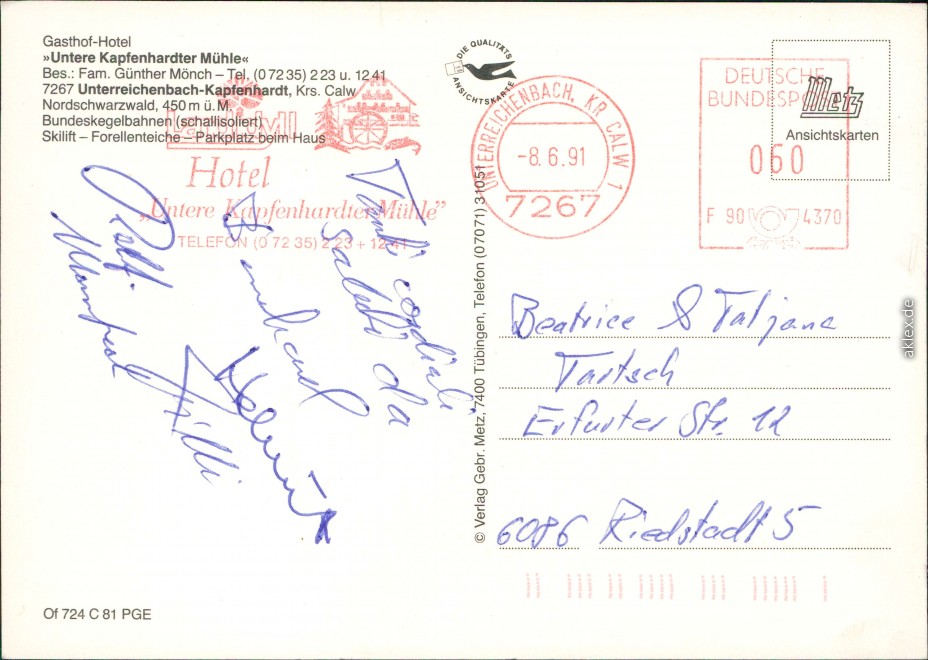 Gasthof-Hotel
»Untere Kapfenhardter Mühle«
Bes.: Fam. Günther Mönch – Tel. (0 72 35) 2 23 u. 12 41
7267 Unterreichenbach-Kapfenhardt, Krs. Calw
Nordschwarzwald, 450 m ü. M.
Bundeskegelbahnen (schallisoliert)
Skilift – Forellenteiche – Parkplatz beim Haus
Hotel
„Untere Kapfenhardter Mühle”
TELEFON (0 72 35) 2 23 + 12 41
DIE QUALITÄTS
ANSICHTSKARTE
UNTERREICHENBACH, KR CALW 1
-8. 6. 91
7267
DEUTSCHE
BUNDESP
060
F 90 4370
Metz
Ansichtskarten
Tanti cordiali
saluti da
Willi
Helmut
© Verlag Gebr. Metz, 7400 Tübingen, Telefon (07071) 31051
Beatrice & Tatjana
Tartsch
Erfurter Str. 12
6086 Riedstadt 5
Of 724 C 81 PGE
aklex.de